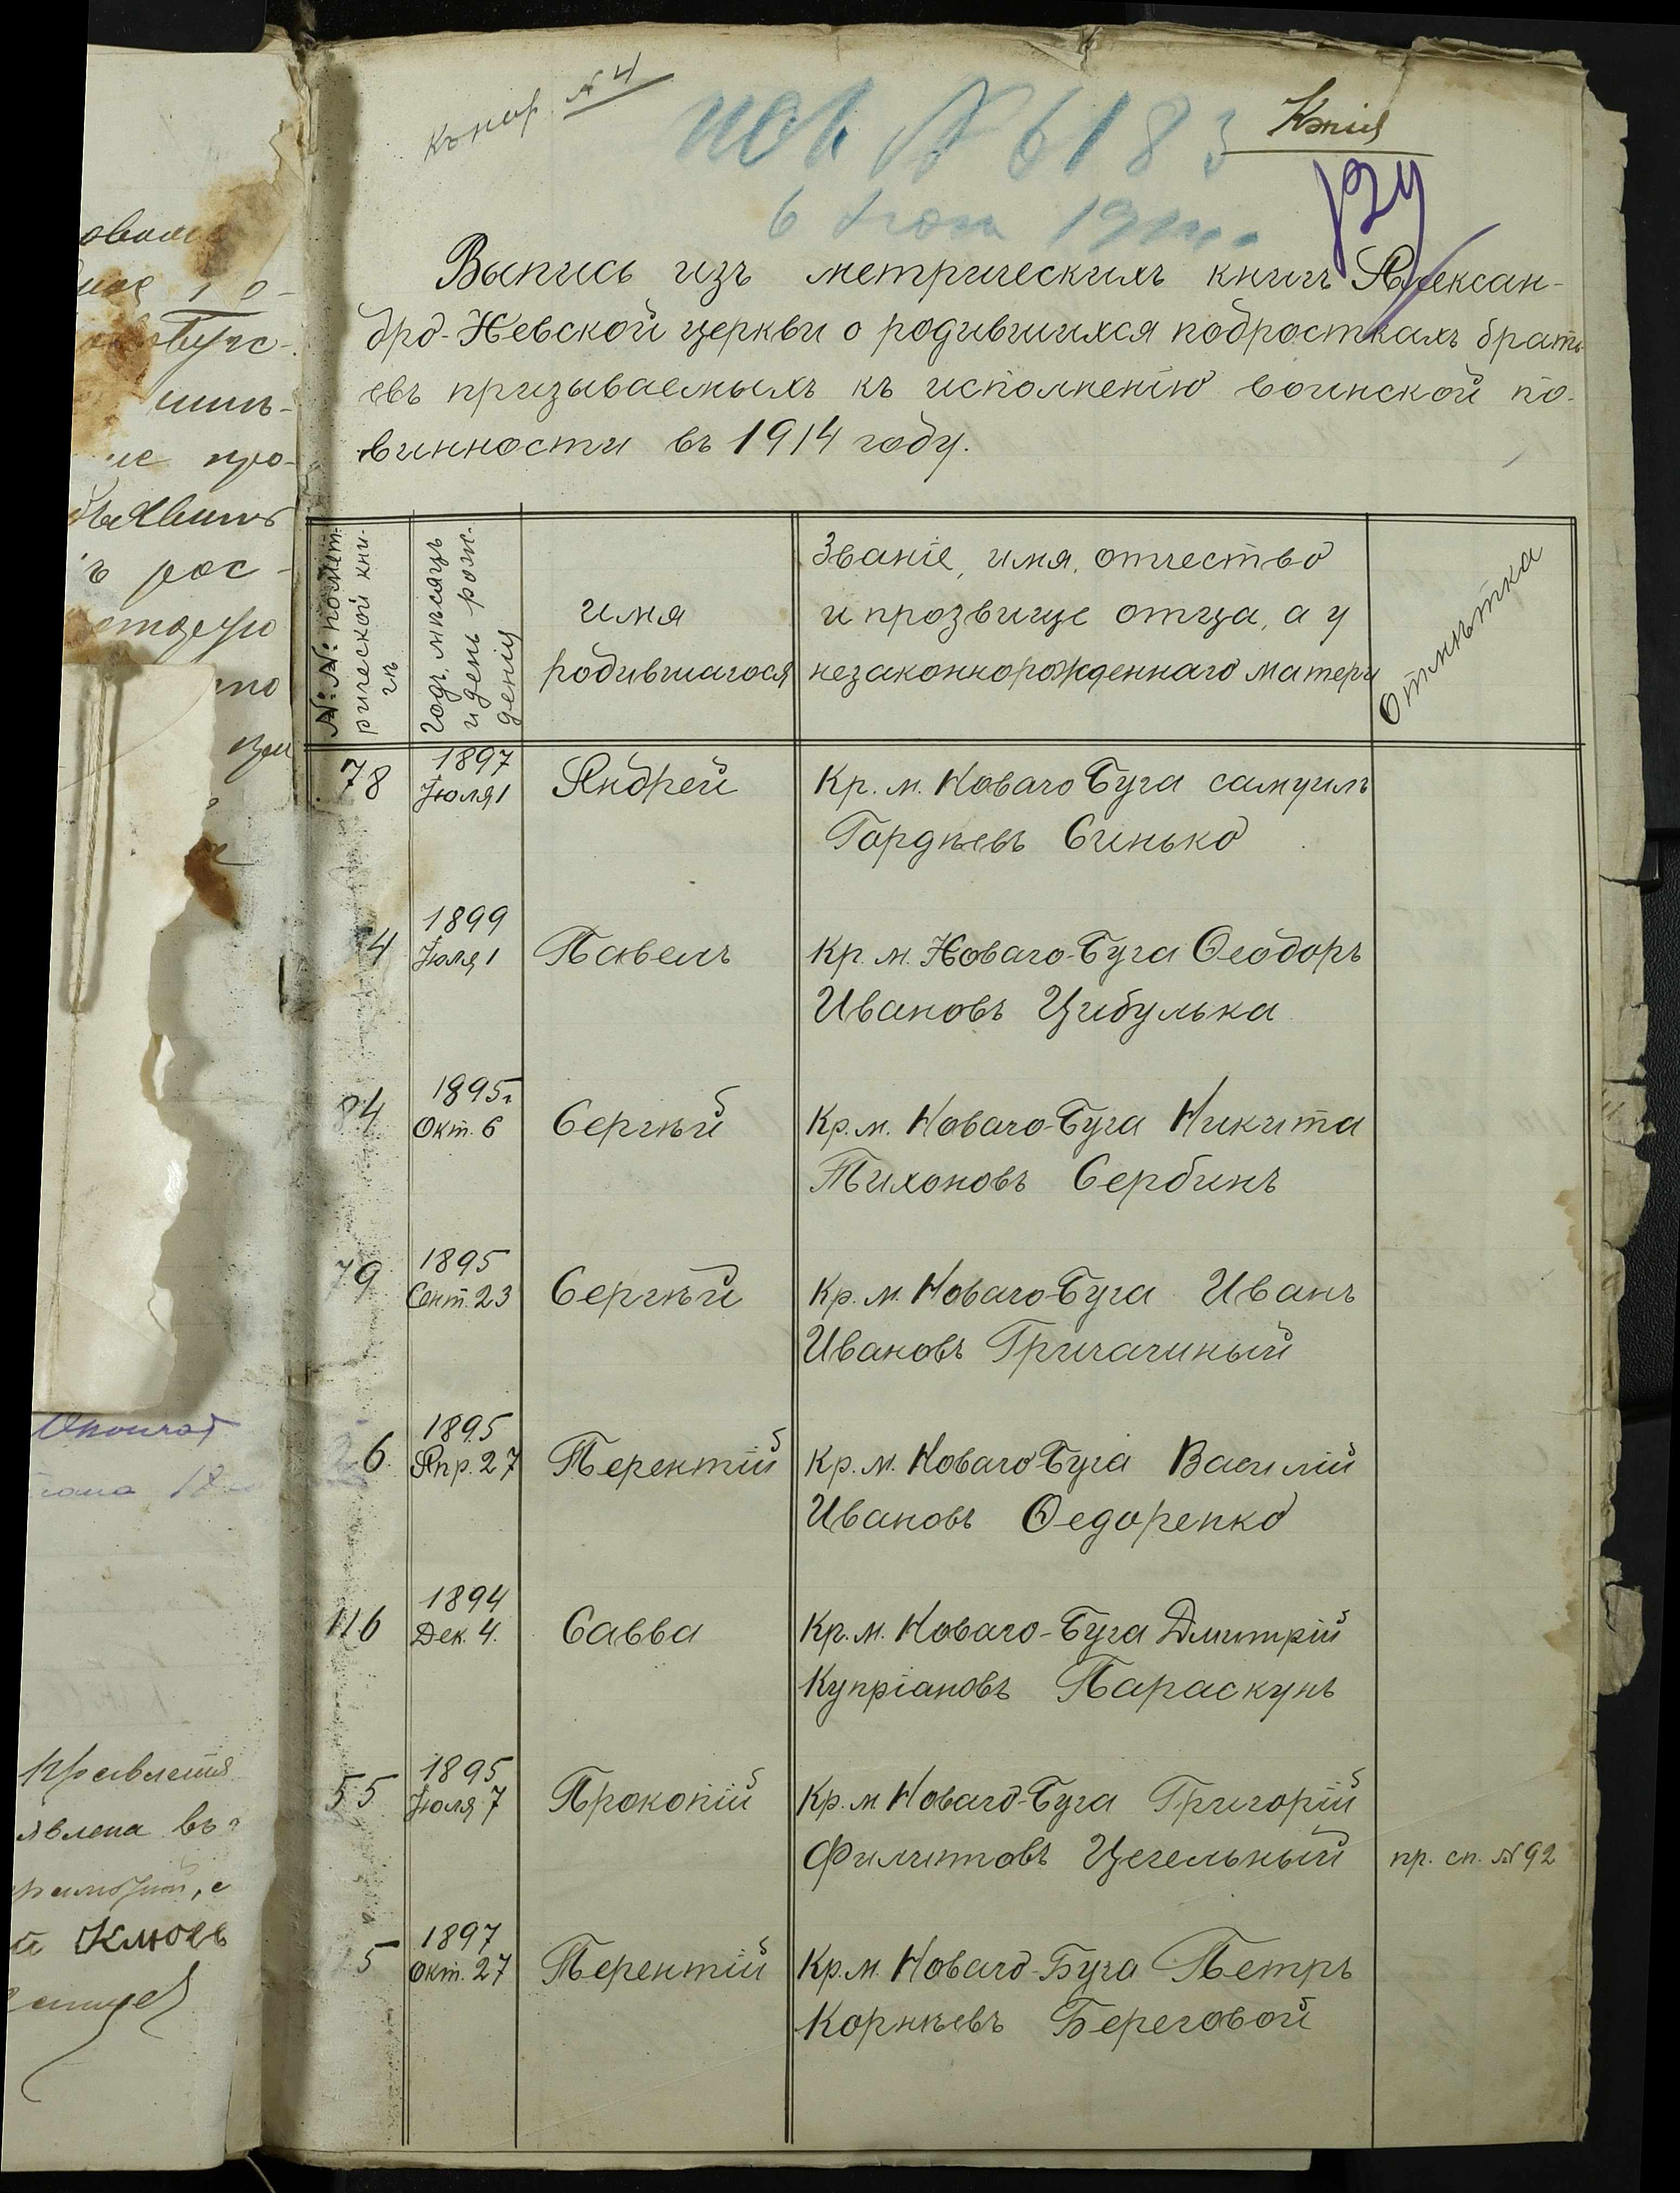 Къ нар. № 4
№ 6183
Копія
Выпись изъ метрическихъ книгъ Алексан-
дро-Невской церкви о родившихся подросткахъ брать-
евъ призываемыхъ къ исполненію воинской по-
винности въ 1914 году.
№:№: по метрической книгѣ
Годъ, мѣсяцъ и день рожденія
имя
родившагося
Званіе, имя, отчество
и прозвище отца, а у
незаконнорожденнаго матери
Отмѣтка
78 1897 Іюля 1 Андрей Кр. м. Новаго Буга Самуилъ
Гордѣевъ Синько
4 1899 Іюля 1 Павелъ Кр. м. Новаго-Буга Ѳеодоръ
Ивановъ Цибулька
84 1895 г. Окт. 6 Сергѣй Кр. м. Новаго-Буга Никита
Тихоновъ Сербинъ
79 1895 Сент. 23 Сергѣй Кр. м. Новаго-Буга Иванъ
Ивановъ Григачиный
6 1895 Апр. 27 Терентій Кр. м. Новаго-Буга Василій
Ивановъ Ѳедоренко
116 1894 Дек. 4. Савва Кр. м. Новаго-Буга Дмитрій
Купріановъ Параскунъ
55 1895 Іюля 7 Прокопій Кр. м. Новаго-Буга Григорій
Филиповъ Цегельный пр. сп. № 92
5 1897 Окт. 27 Терентій Кр. м. Новаго-Буга Петръ
Корнѣевъ Береговой